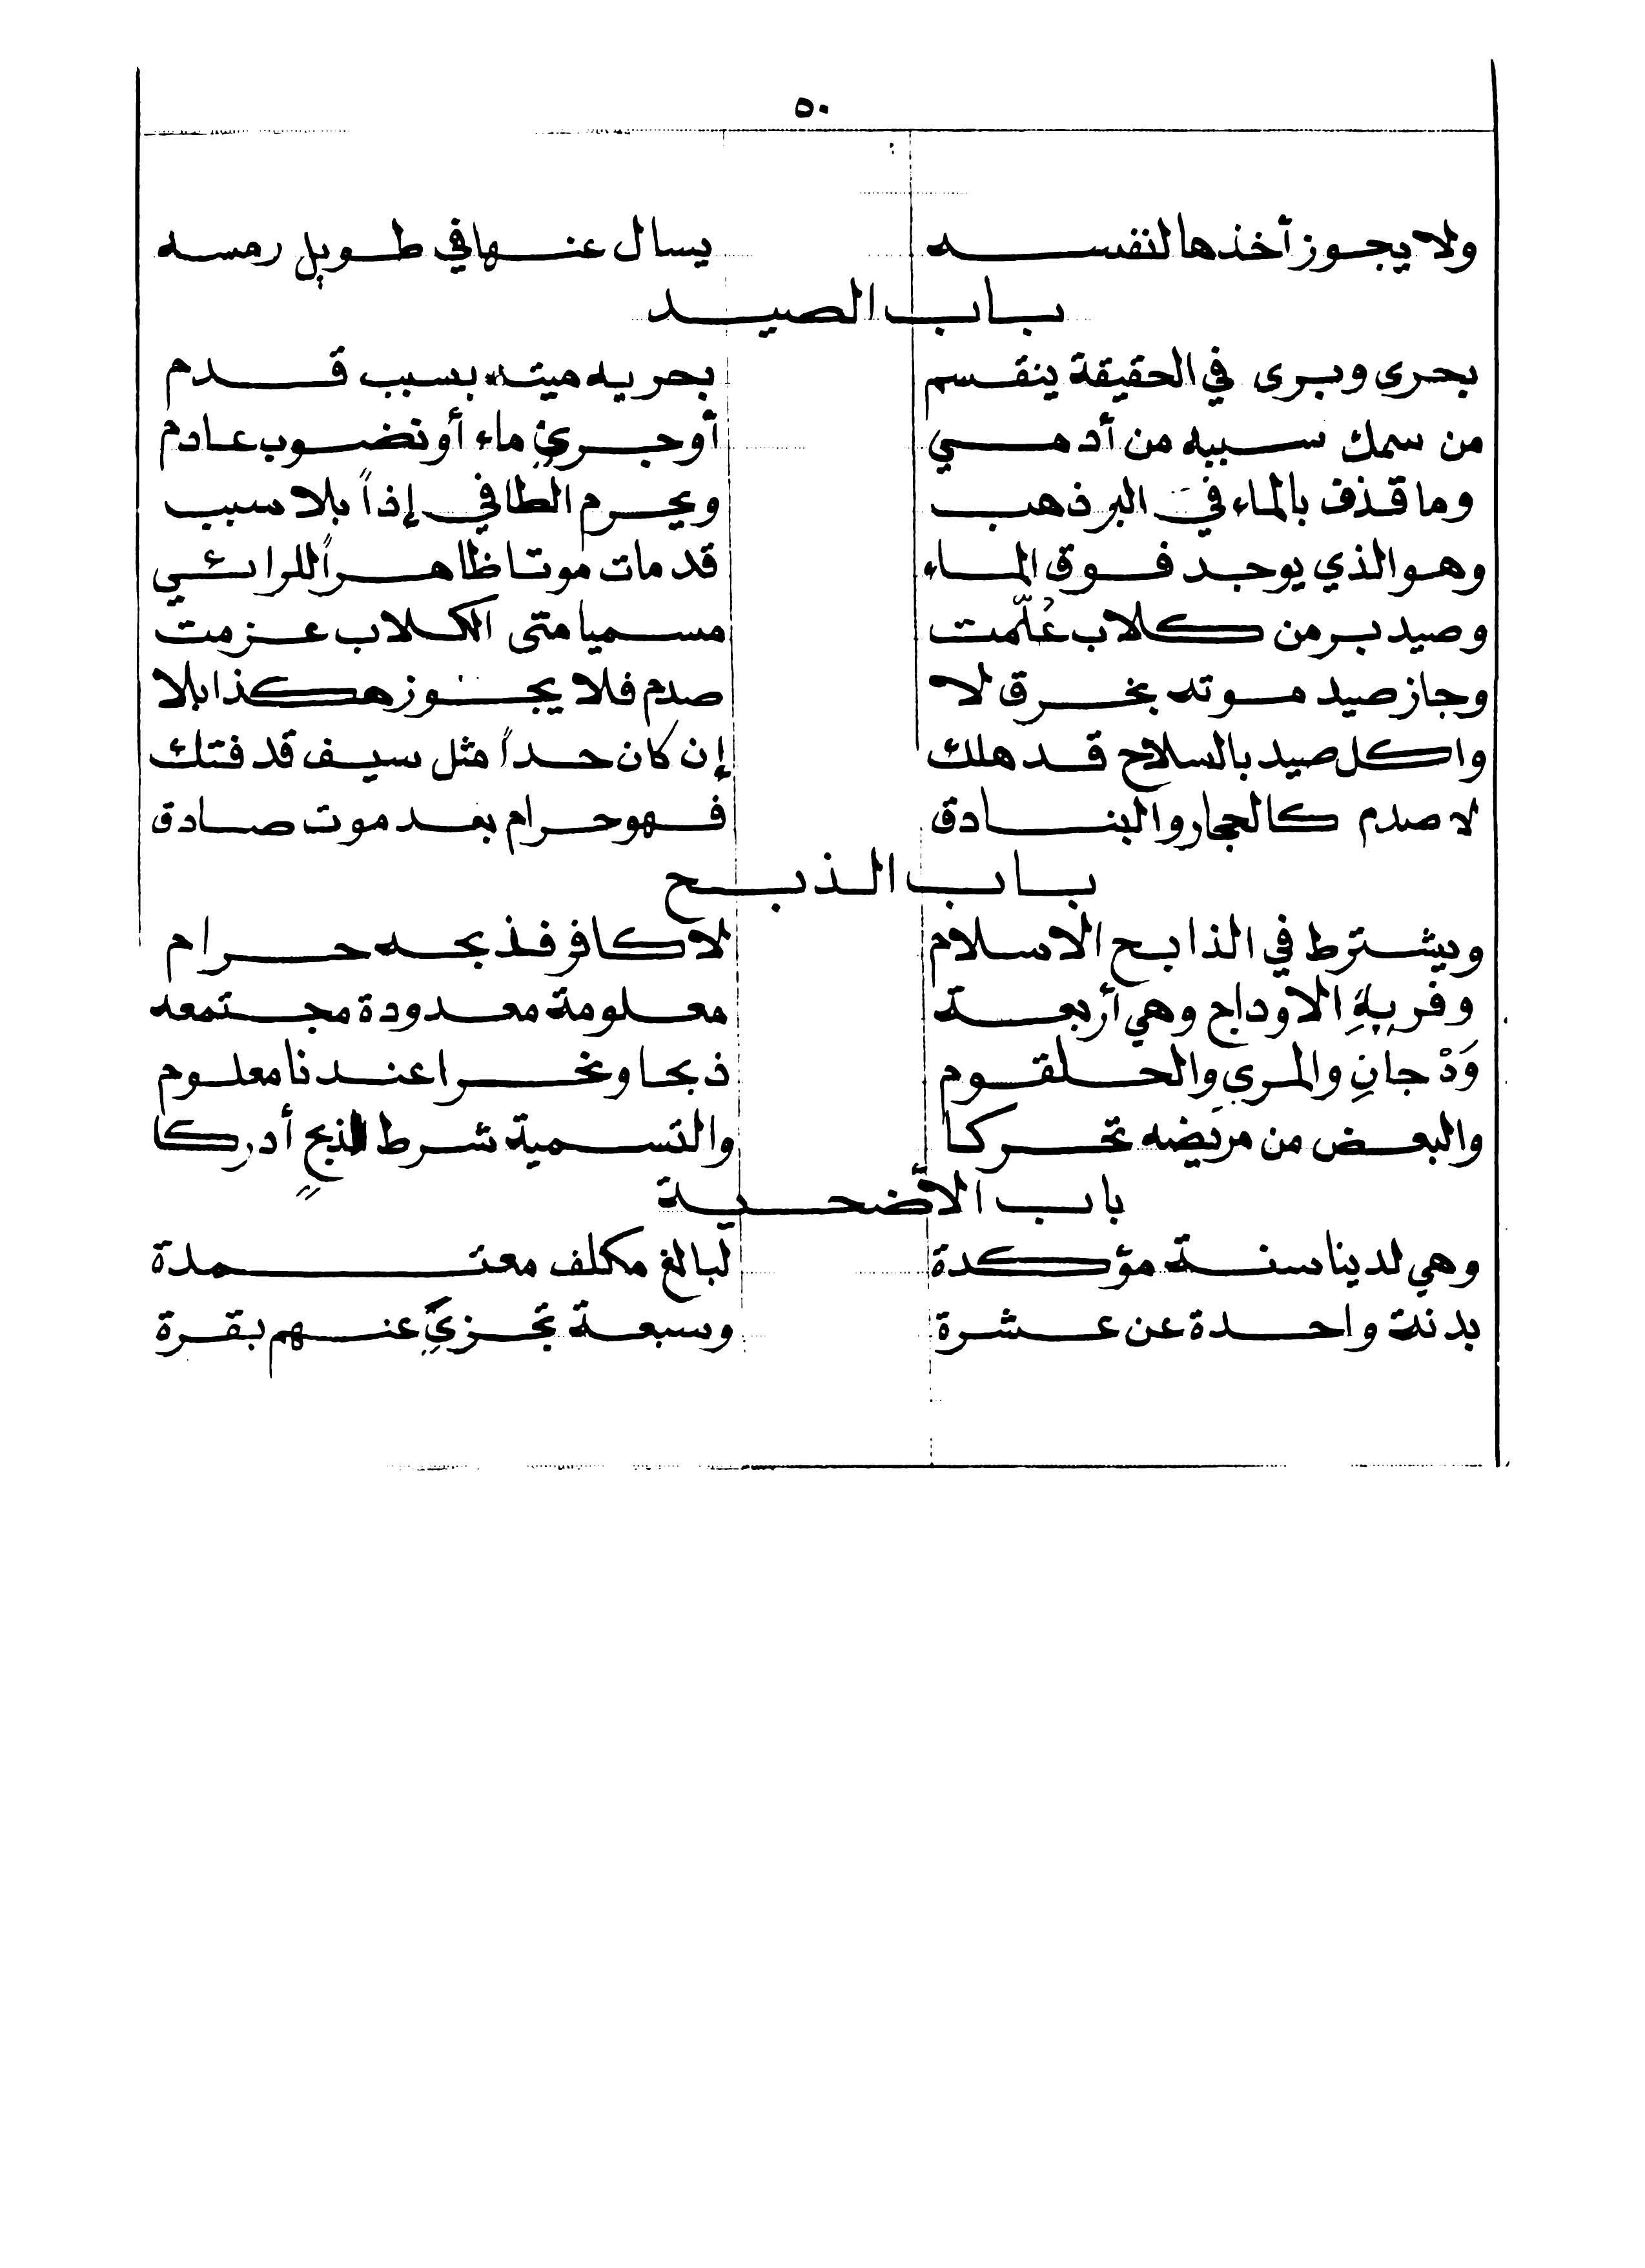 ٥٠
ولا يجوز أخذها لنفسه يسال عنها في طويل رمسه
باب الصيد
بحرى وبرى في الحقيقة ينقسم بحريه ميته بسبب قدم
من سمك سببه من أدمي أو جري ماء أو نضوب عادم
وما قذف بالماء في البر ذهب ويحرم الطافي إذاً بلا سبب
وهو الذي يوجد فوق الماء قد مات موتا ظاهراً للرائي
وصيد بر من كلاب عُلّمت مسميا متى الكلاب عزمت
وجاز صيد موته بخرق لا صدم فلا يجوز هكذا بلا
واكل صيد بالسلاح قد هلك إن كان حداً مثل سيف قد فتك
لا صدم كالحجار والبنادق فهو حرام بعد موت صادق
باب الذبح
ويشترط في الذابح الاسلام لا كافر فذبحه حرام
وفرية الاوداج وهي أربعة معلومة معدودة مجتمعه
وَدْجانِ والمري والحلقوم ذبحا ونحرا عندنا معلوم
والبعض من مريضه تحركا والتسمية شرط الذبح أدركا
باب الأضحية
وهي لدينا سنة مؤكدة لبالغ مكلف معتمدة
بدنة واحدة عن عشرة وسبعة تجزي عنهم بقرة